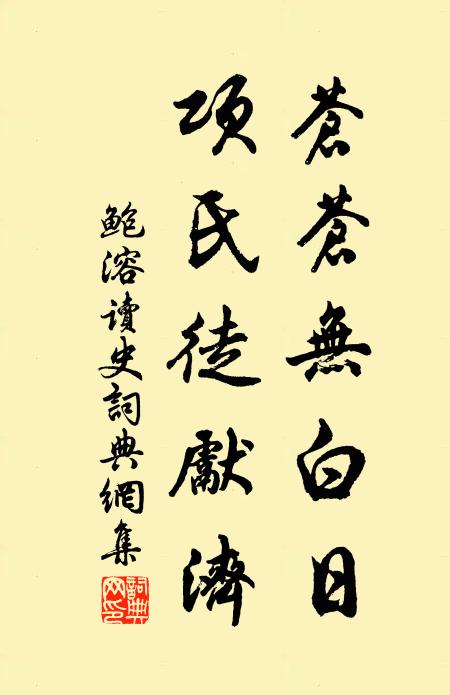 蒼蒼無白日
項氏徒獻濟
鮑溶讀史詞典網集
詞典網印